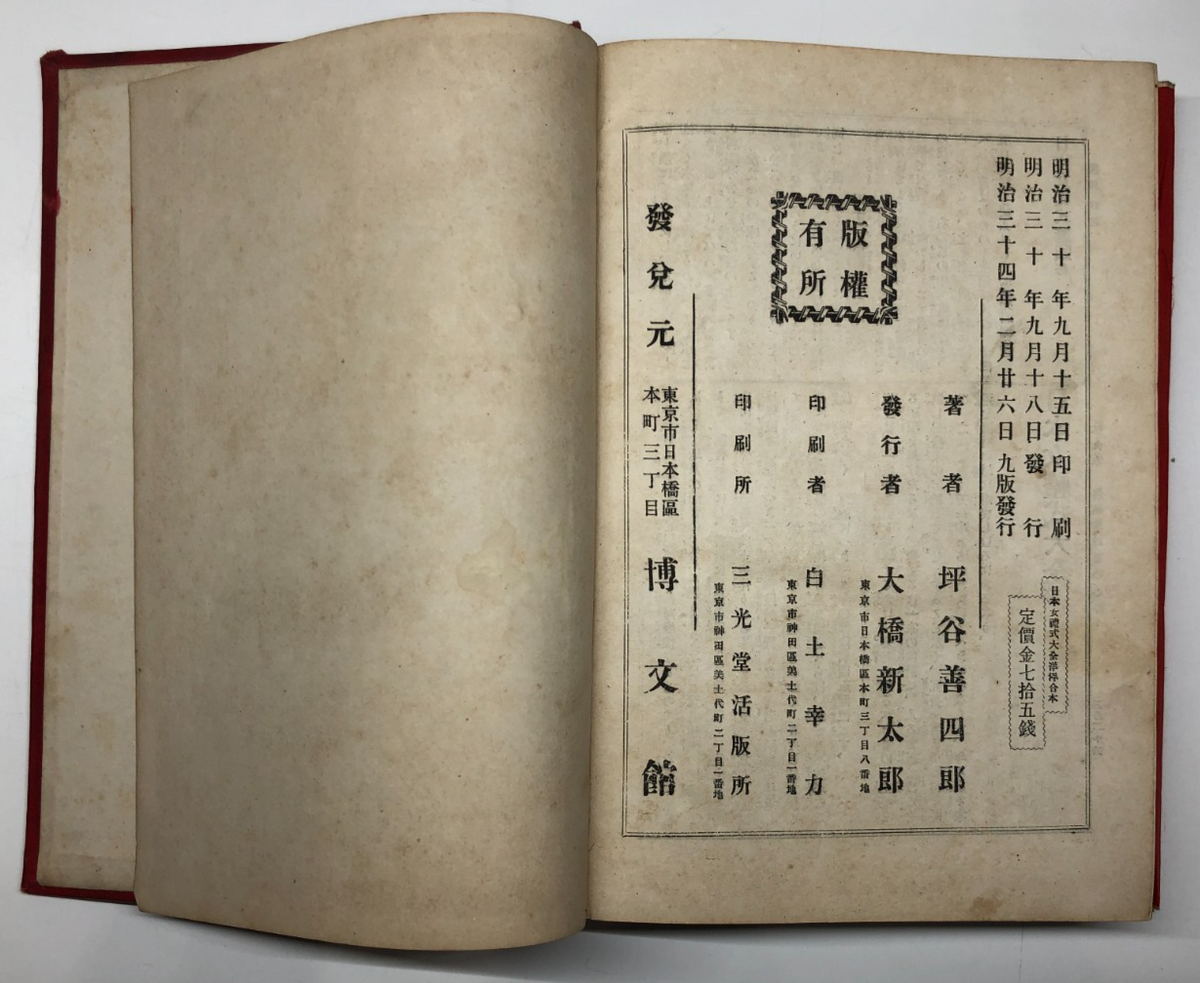 明治三十年九月十五日印刷
明治三十年九月十八日發行
明治三十四年二月廿六日九版發行
日本女禮式大全洋裝合本
定價金七拾五錢
著者 坪谷善四郎
發行者 大橋新太郎
東京市日本橋區本町三丁目八番地
印刷者 白土幸力
東京市神田區美土代町二丁目一番地
印刷所 三光堂活版所
東京市神田區美土代町二丁目一番地
版權
有所
發兌元
東京市日本橋區
本町三丁目
博文館